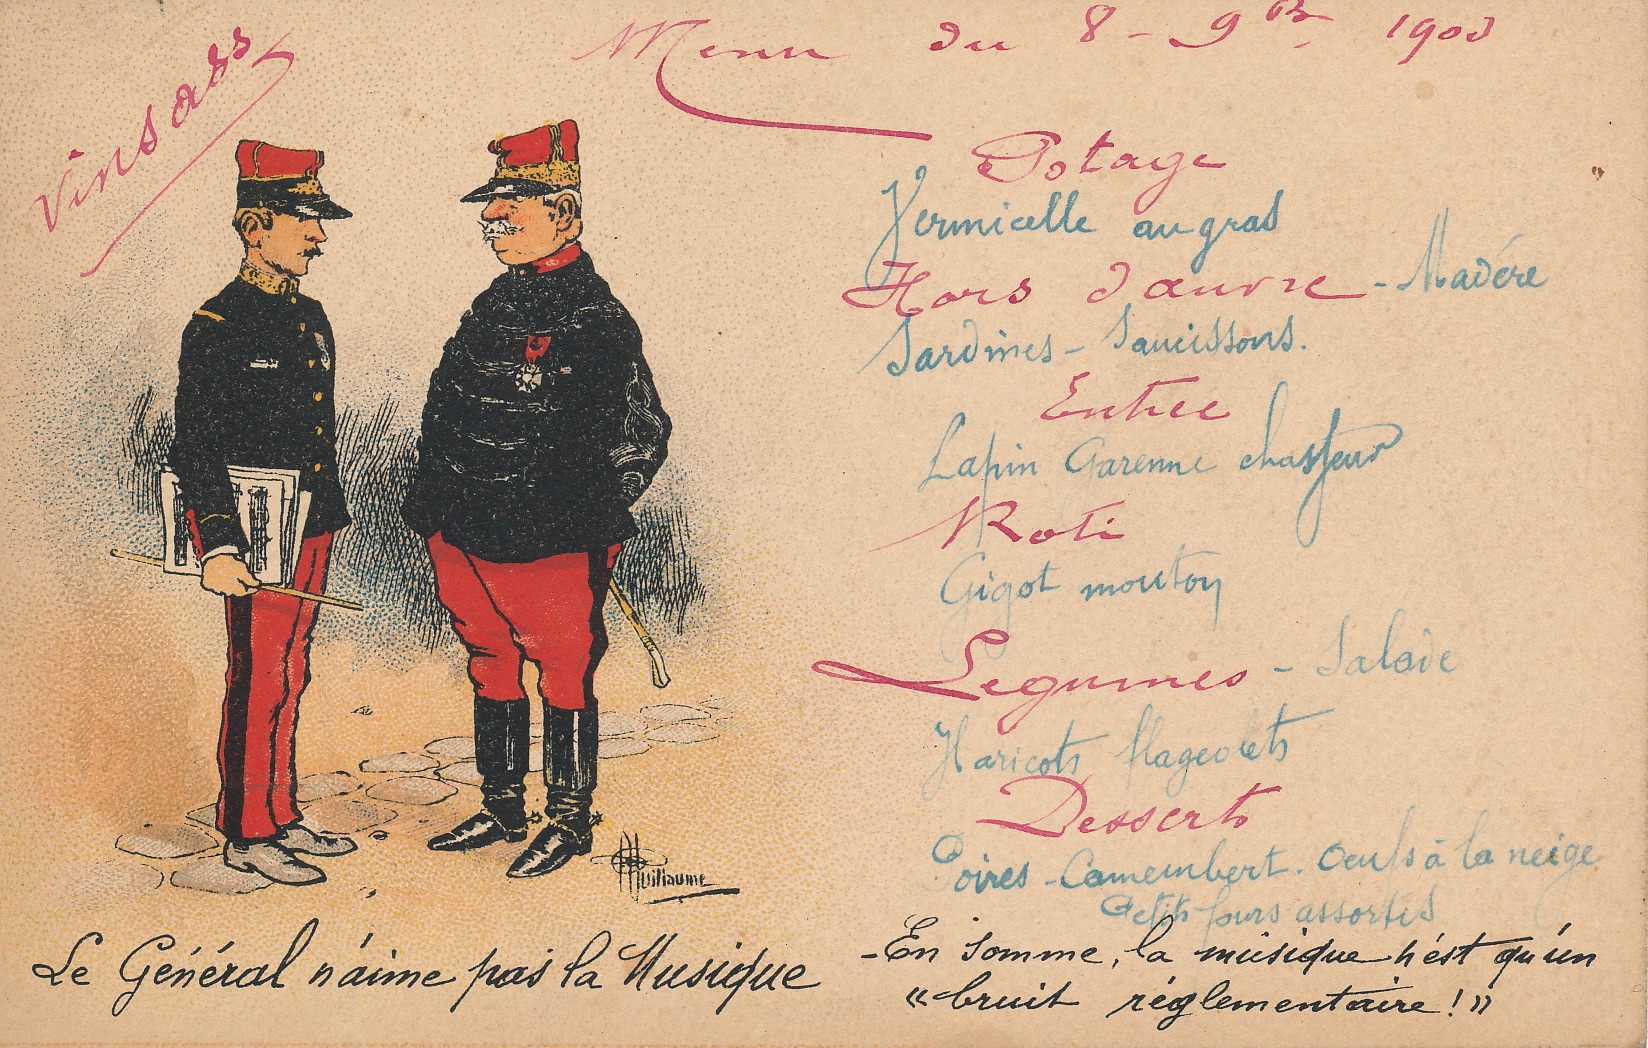 Vinsous
Menu du 8 - 9bre 1903
Potage
Vermicelle au gras
Hors d'œuvre - Madère
Sardines - Saucissons.
Entrée
Lapin Garenne chasseur
Roti
Gigot mouton
Legumes - Salade
Haricots flageolets
Desserts
Poires - Camembert. Oeufs à la neige
Petits fours assortis
Guillaume
Le Général n'aime pas la Musique
- En somme, la musique n'est qu'un
« bruit réglementaire ! »